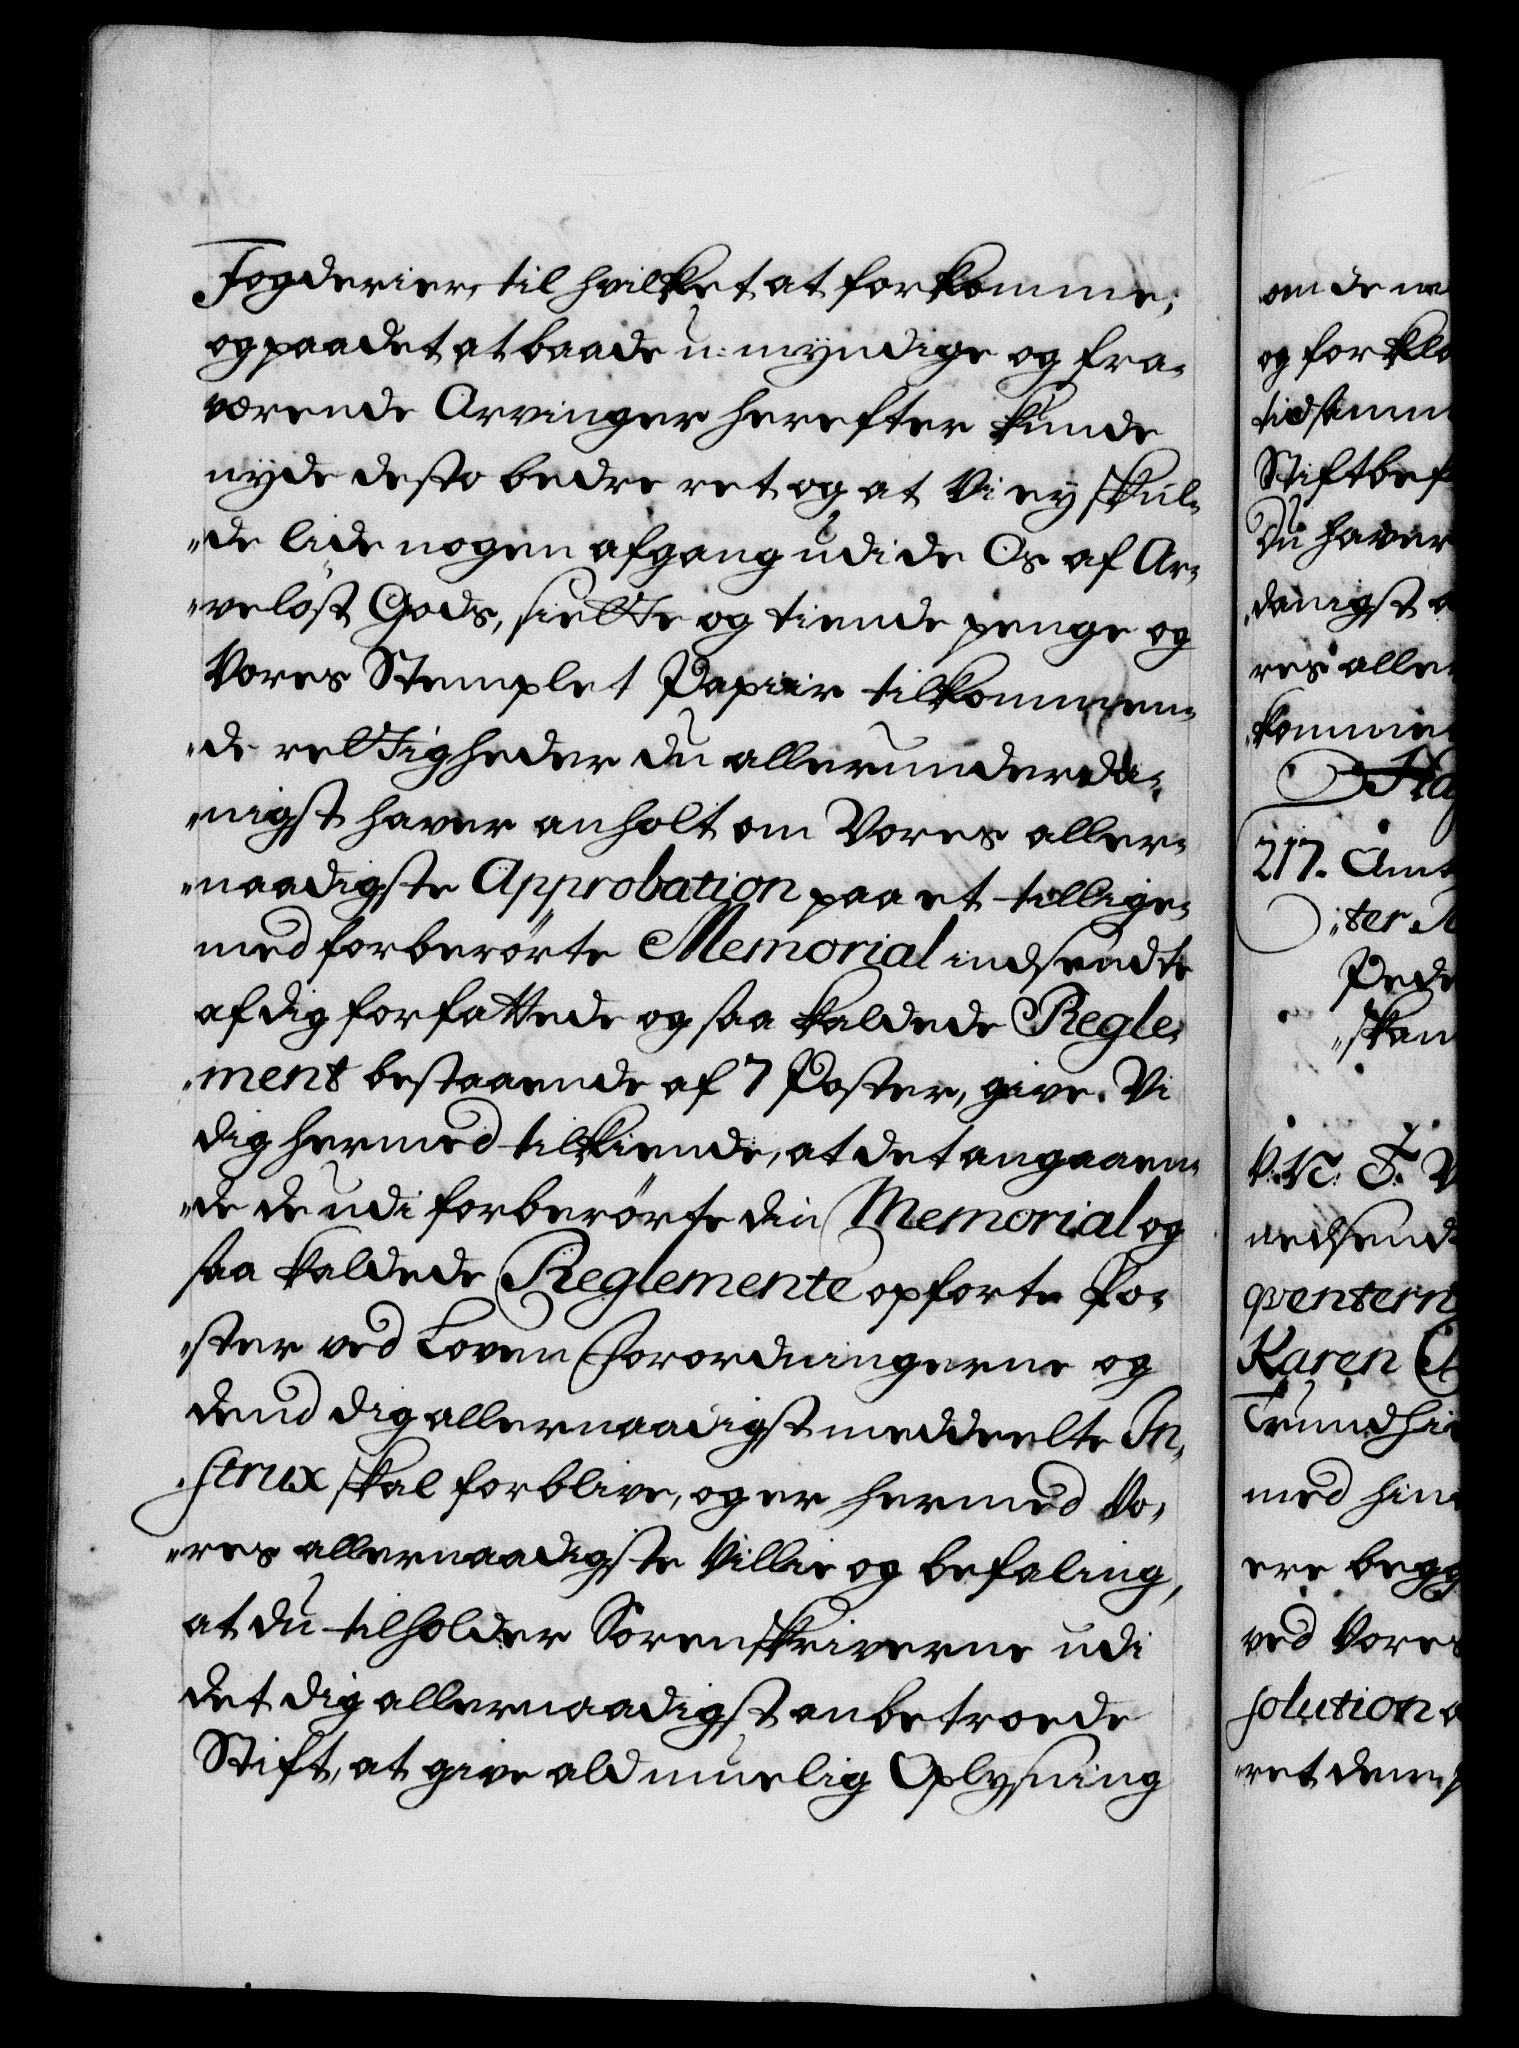 Fogderier, til hvilket at forkomme,
og paa det at baade u-myndige og fra-
værende Arvinger herefter kunde
nyde desto bedre ret og at Vi ey skul-
"de lide nogen afgang udi de Os af Ar-
"veløst Gods, siette og tiende penge og
Vores Stemplet Papiir tilkommen-
"de rettigheder du allerunderdа-
"nigst haver anholt om Vores aller-
"naadigste Approbation paa et tillige-
med forberørte Memorial indsendte
af dig forfattede og saa kaldede Regle-
"ment bestaaende af 7 Poster, give Vi
dig hermed tilkiende, at det angaaen-
"de de udi forberørte din Memorial og
saa kaldede Reglemente opførte Po-
"ster ved Loven Forordningerne og
dend dig allernaadigst meddeelte In-
"strux skal forblive, og er hermed Vo-
"res allernaadigste Villie og befaling,
at du tilholder Sorenskriverne udi
det dig allernaadigst anbetroede
Stift, at give ald muelig Oplysning
om de
og forkla
tid
Stiftbef
Du haver
"danigst
res aller
"komme
217. Amt
"ter
Pede
"skan
V. N. F. V
nedsend
qventern
Karen
Trundhie
med hin
ere begg
ved Vores
solution
"ret dem